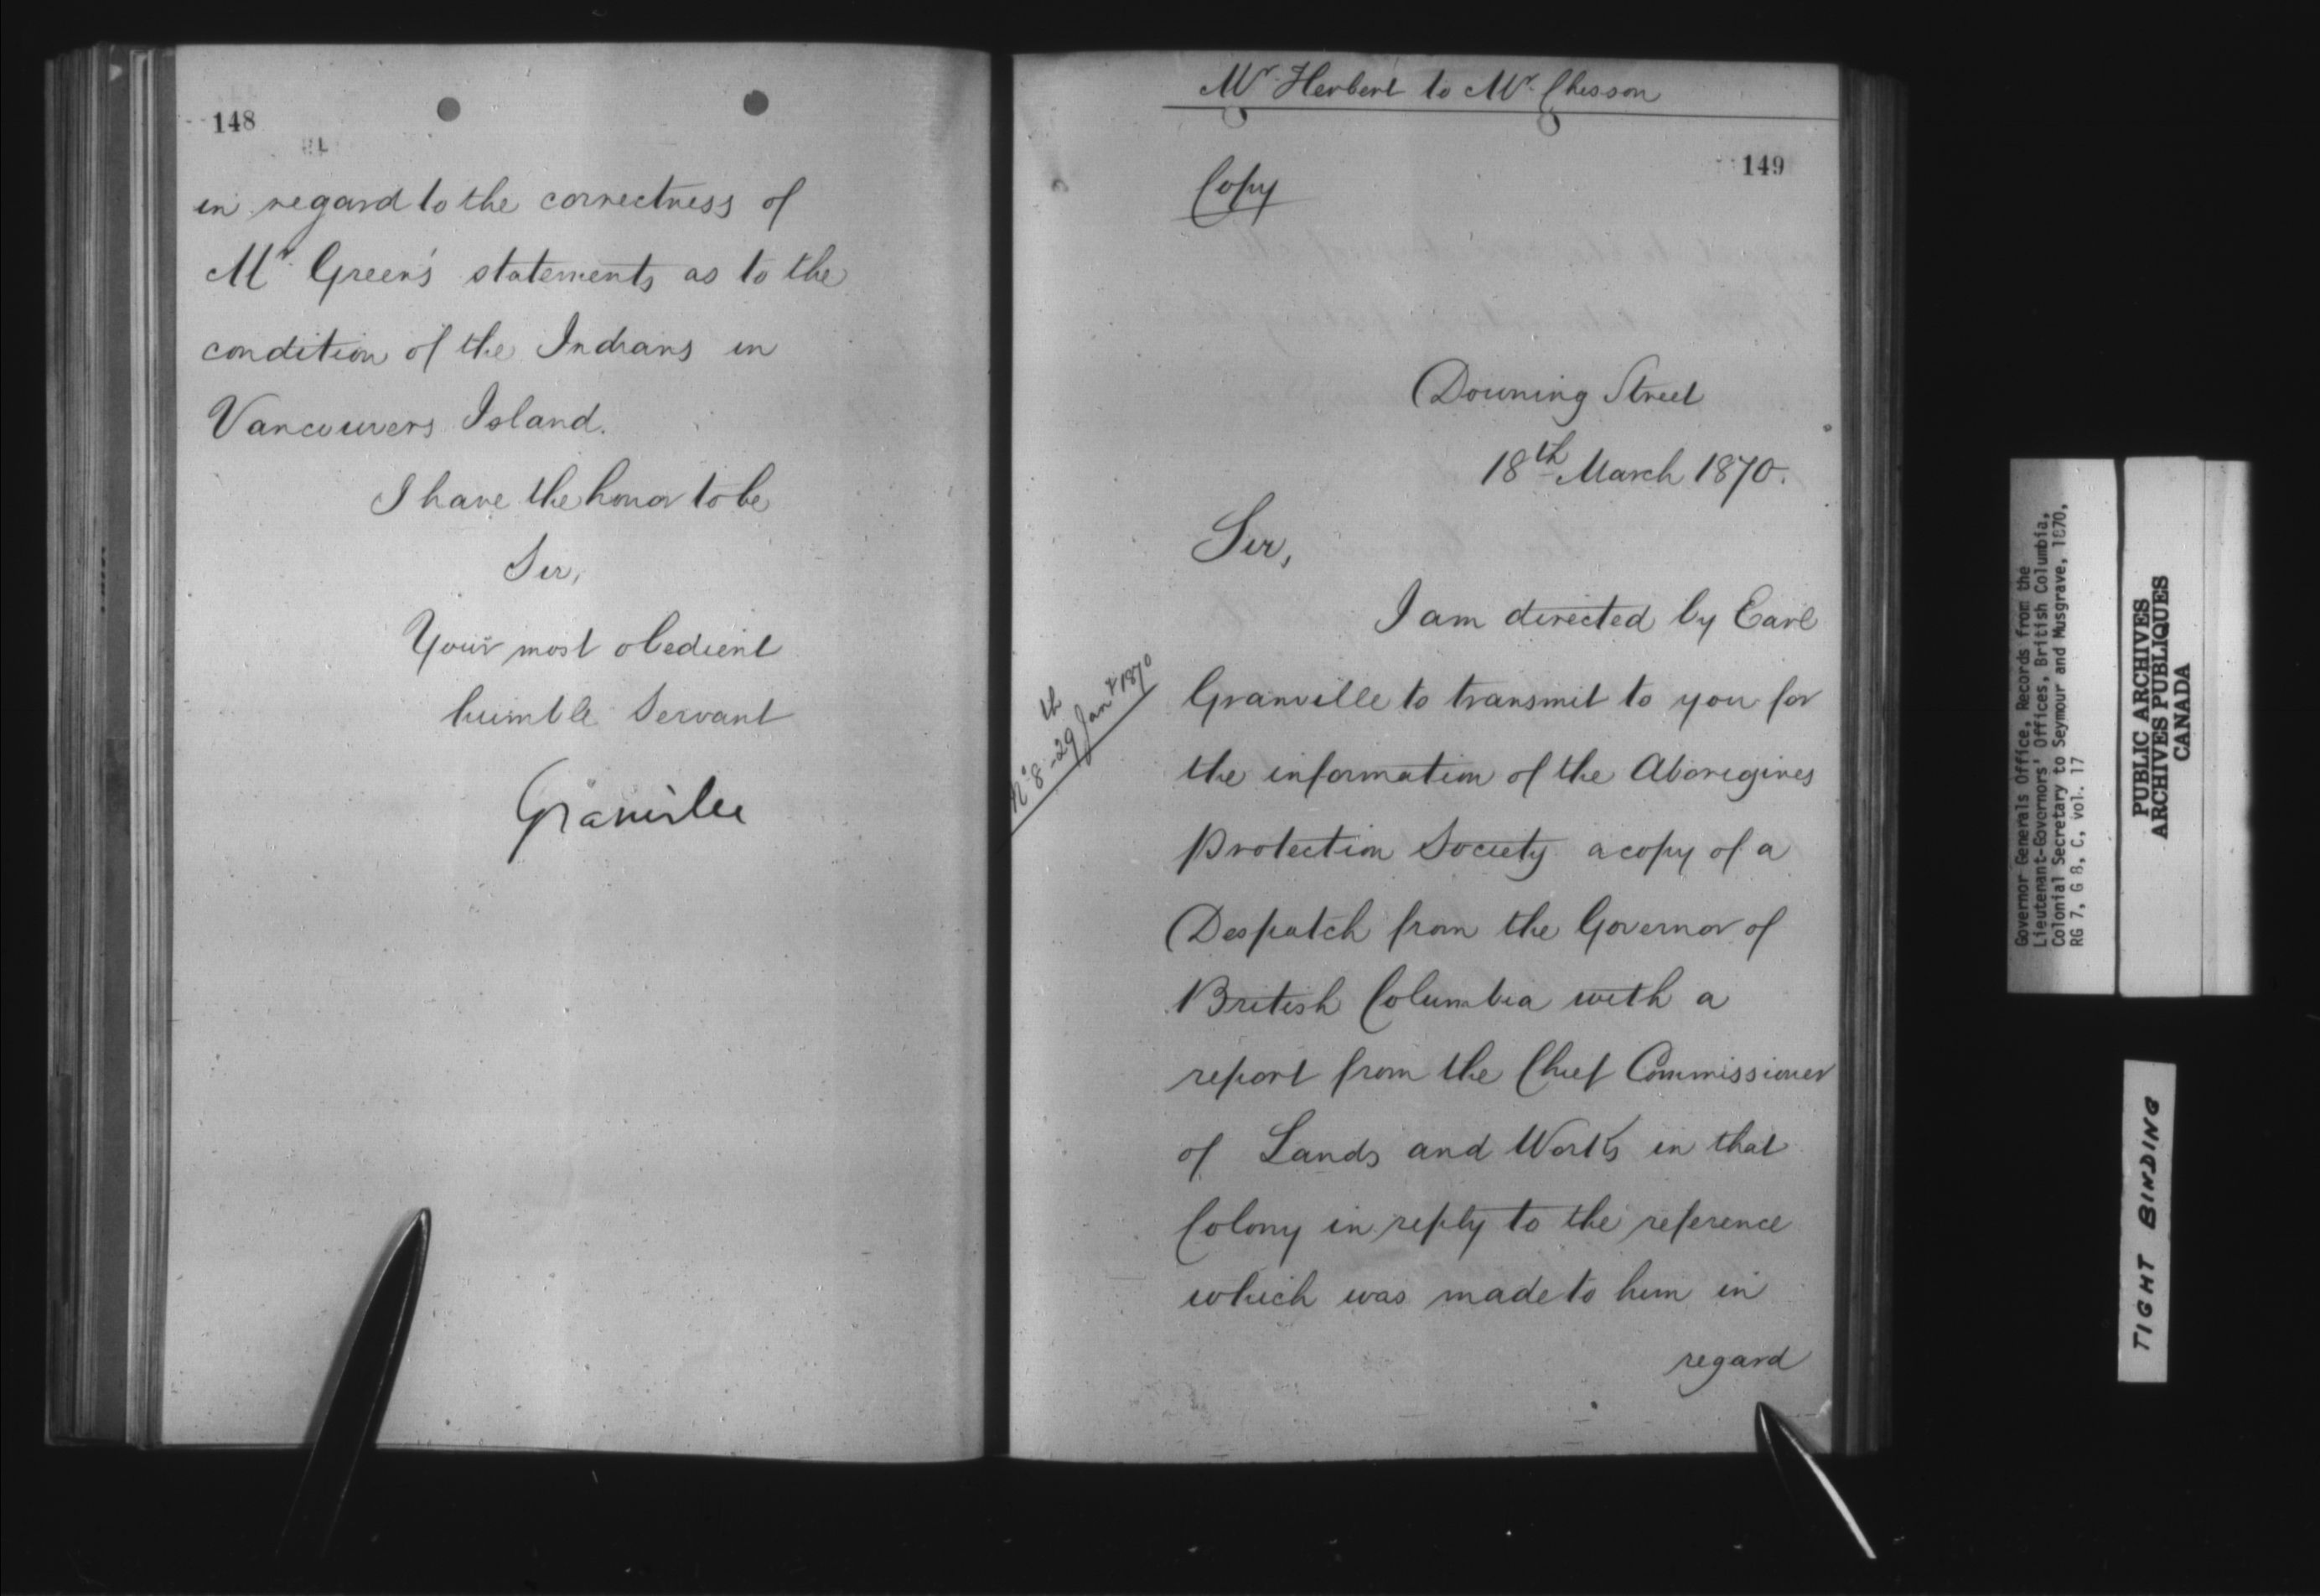 148
in regard to the correctness of
Mr. Green's statements as to the
condition of the Indians in
Vancouvers Island.
I have the honor to be
Sir,
Your most obedient
humble Servant
Granville
Mr. Herbert to Mr. Chesson
149
Copy
Downing Street
18th March 1870.
Sir,
I am directed by Earl
Granville to transmit to you for
the information of the Aborigines
Protection Society a copy of a
Despatch from the Governor of
British Columbia with a
report from the Chief Commissioner
of Lands and Works in that
Colony in reply to the reference
which was made to him in
regard
No 8 - 29th Jany 1870
Governor Generals Office, Records from the
Lieutenant-Governors' Offices, British Columbia,
Colonial Secretary to Seymour and Musgrave, 1870,
RG 7, G 8, C, vol. 17
PUBLIC ARCHIVES
ARCHIVES PUBLIQUES
CANADA
TIGHT BINDING